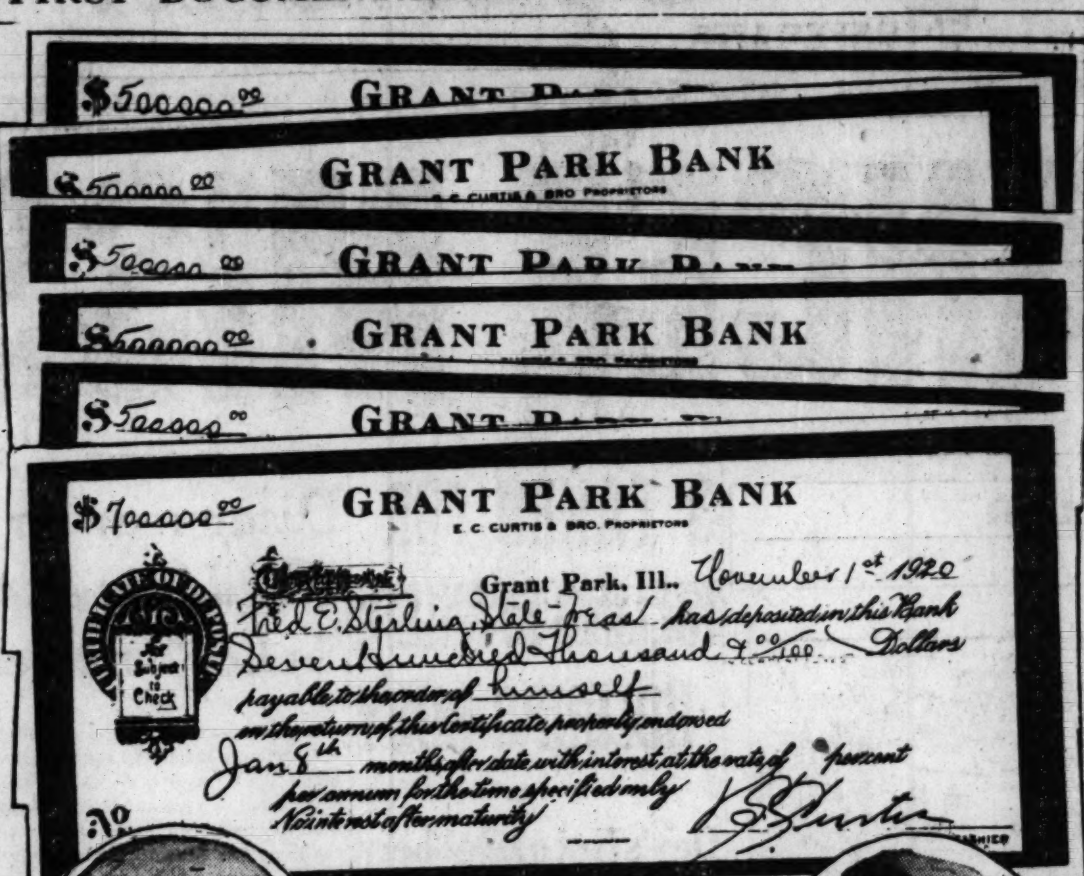 FIRST
$500000 00 GRANT
$500000 00 GRANT PARK BANK
E. C. CURTIS & BRO PROPRIETORS
$500000 00 GRANT PARK BANK
$500000 00 GRANT PARK BANK
CURTIS & BRO PROPRIETORS
$500000 00 GRANT
$700000 00 GRANT PARK BANK
E. C. CURTIS & BRO. PROPRIETORS
CERTIFICATE OF DEPOSIT
Not
Subject
to
Check
Grant Park, Ill., November 1st 1920
Fred E. Sterling, State Treas has deposited in this Bank
Seven Hundred Thousand & 00/100 Dollars
payable to the order of himself
on the return of this Certificate properly endorsed
Jan 8th months after date, with interest at the rate of percent
per annum for the time specified only
No interest after maturity
No
Curtis
CASHIER